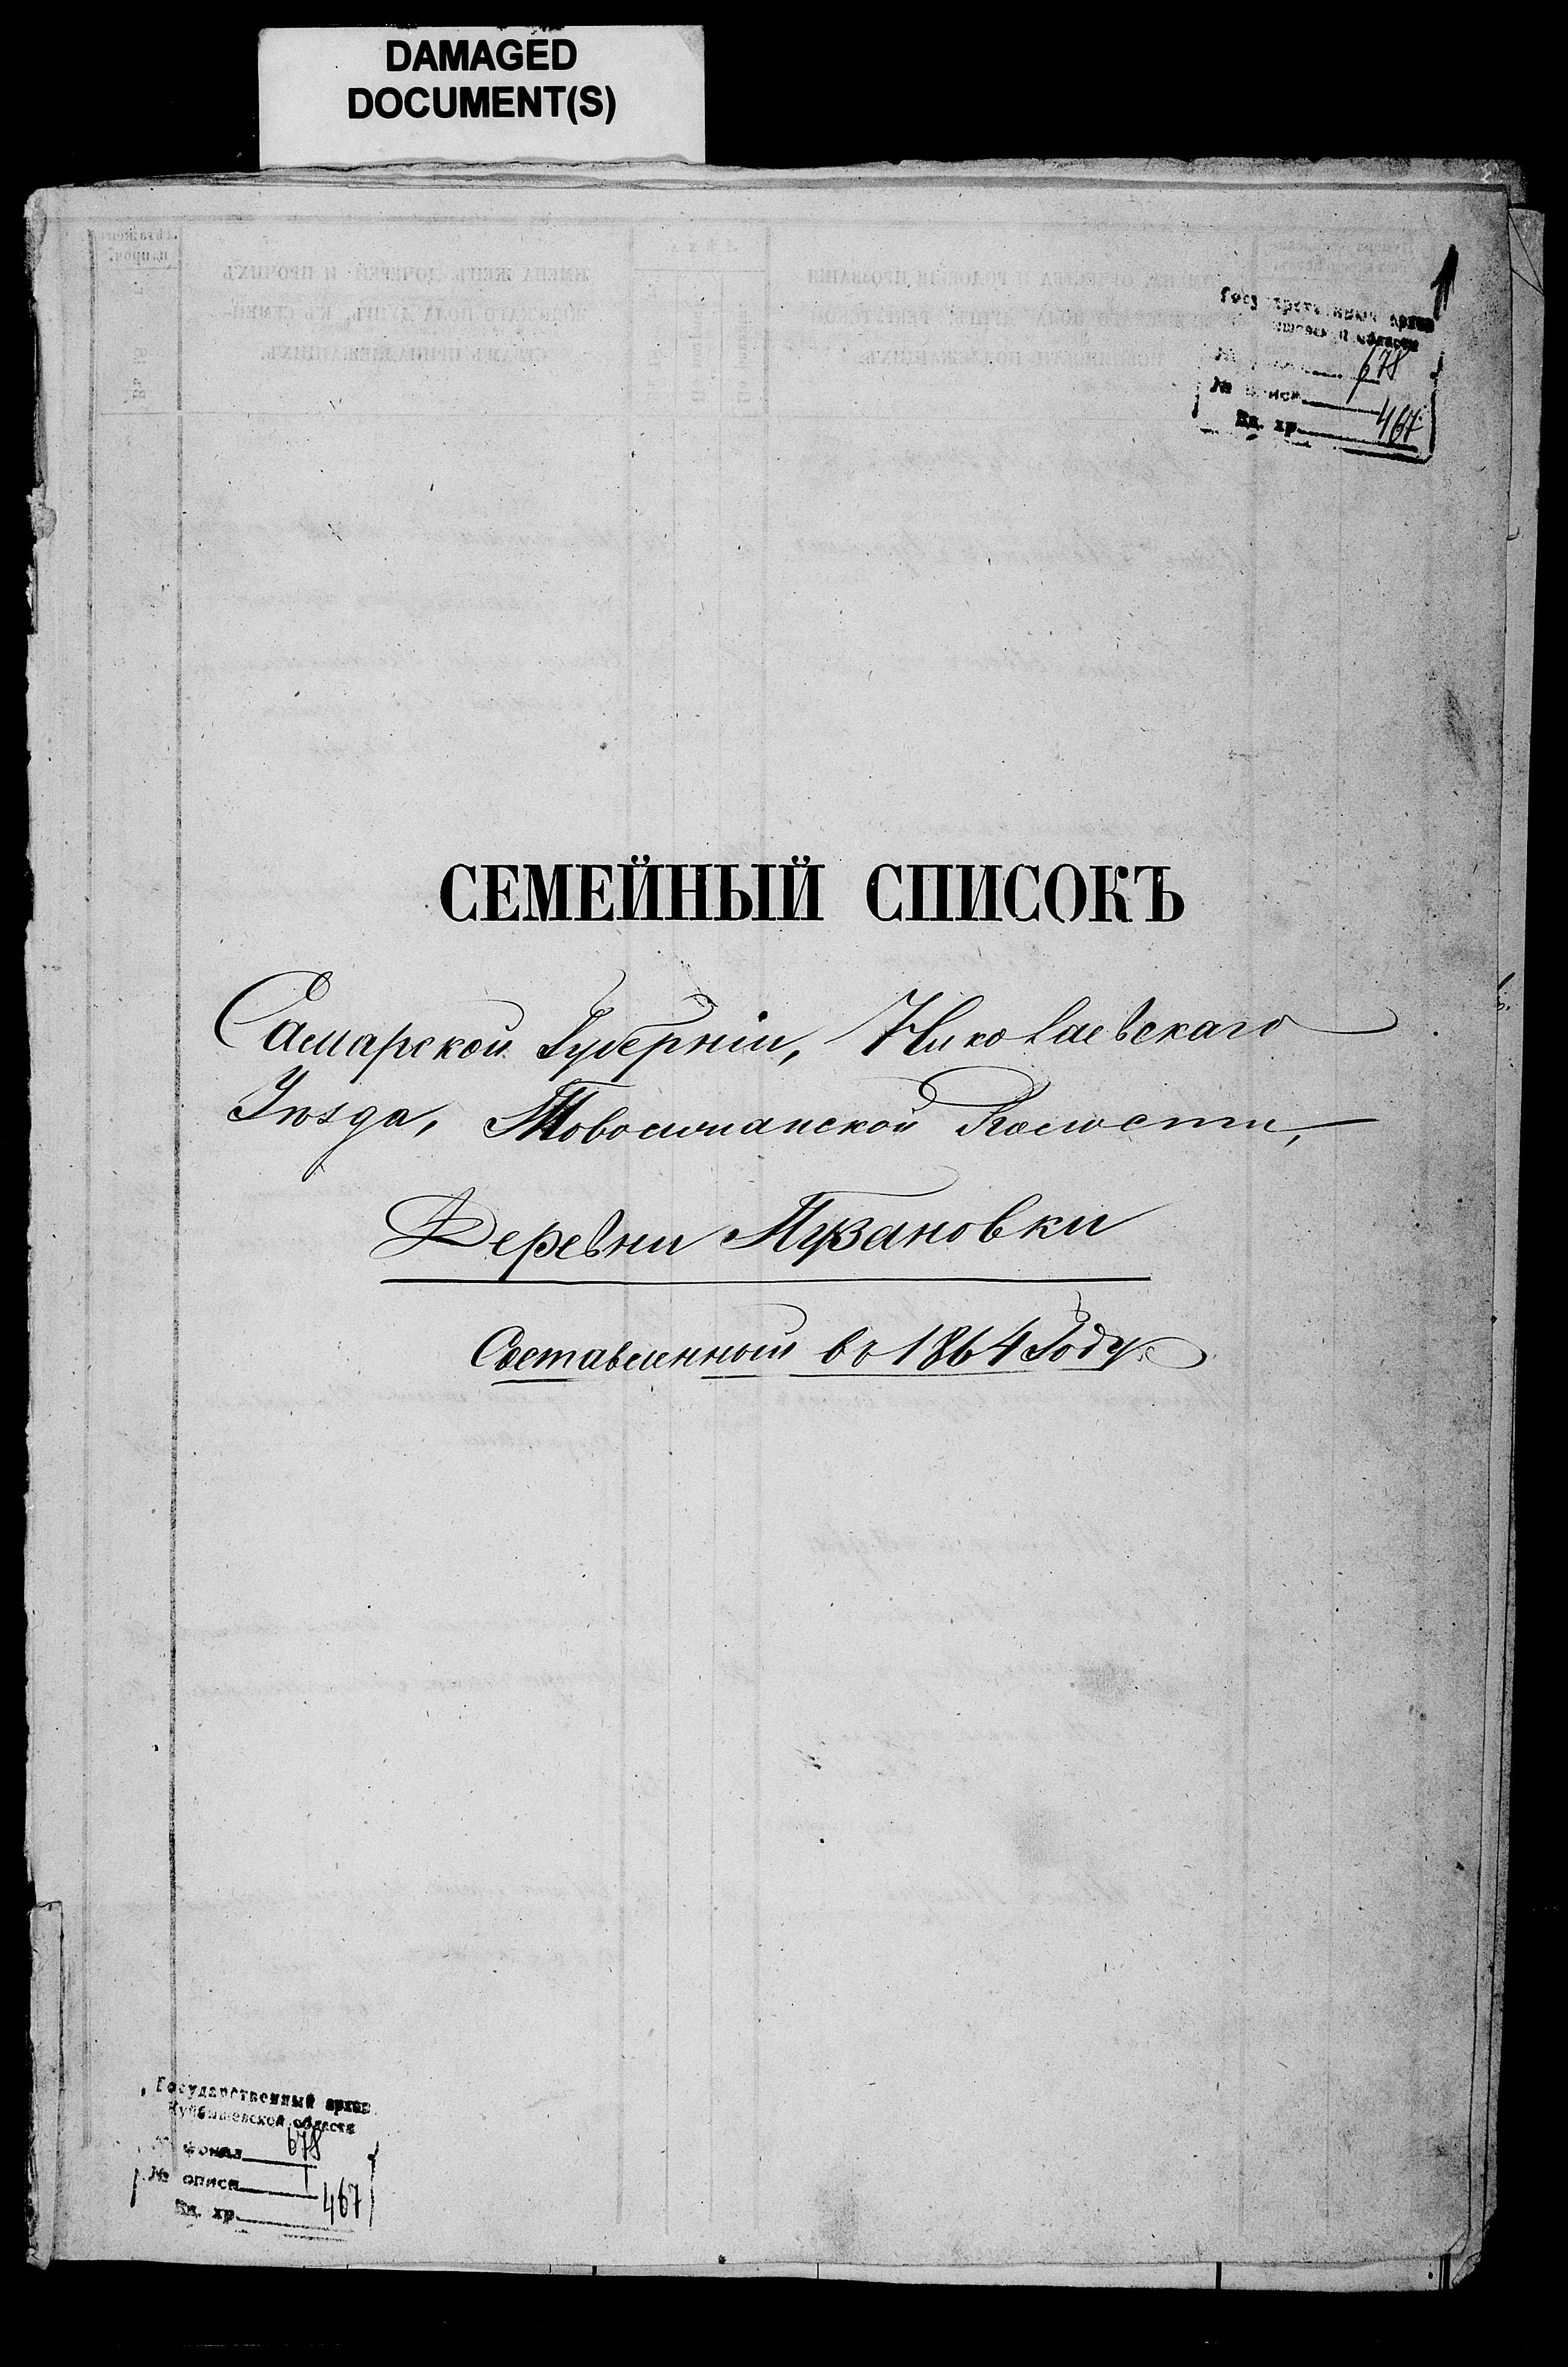 DAMAGED
DOCUMENT(S)
Государственный архив
области
№ 678
№ описи
Ед. хр. 467
СЕМЕЙНЫЙ СПИСОКЪ
Самарской Губерніи, Николаевскаго
Уѣзда, Волости,
Деревни Пузановки
Составленный въ 1864 Году.
Государственный архив
Куйбышевской области
№ фонда 678
№ описи 1
Ед. хр. 467